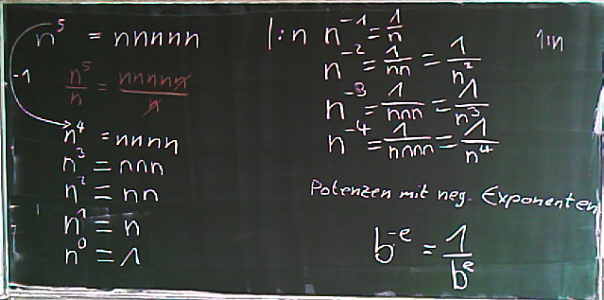 n⁵ = nnnnn
-1
n⁵/n = nnnnn/n
n⁴ = nnnn
n³ = nnn
n² = nn
n¹ = n
n⁰ = 1
|:n n⁻¹ = 1/n
n⁻² = 1/nn = 1/n²
n⁻³ = 1/nnn = 1/n³
n⁻⁴ = 1/nnnn = 1/n⁴
Potenzen mit neg. Exponenten
b⁻ᵉ = 1/bᵉ